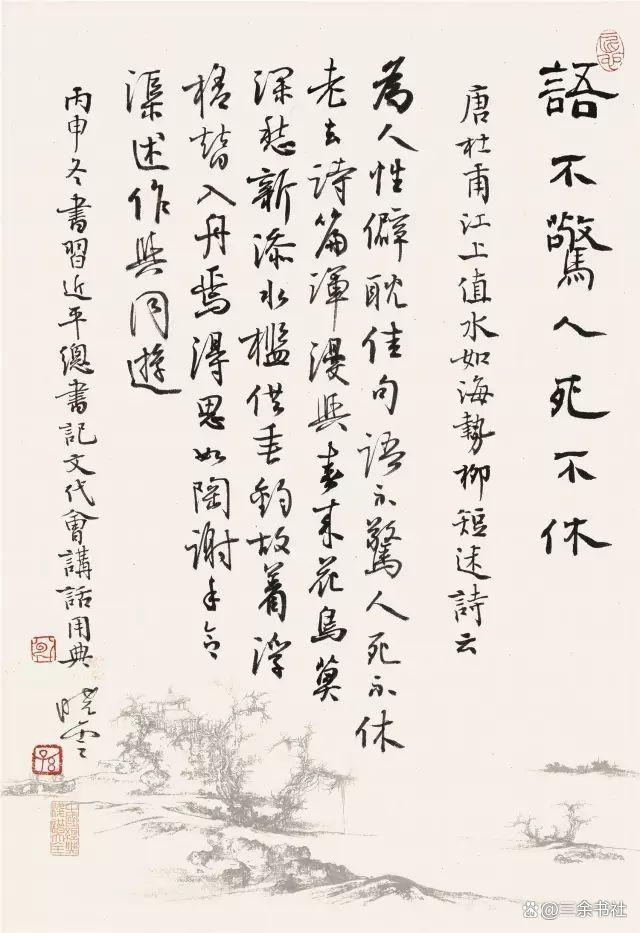 語不驚人死不休
唐杜甫江上值水如海勢聊短述詩云
為人性僻耽佳句語不驚人死不休
老去詩篇渾漫與春來花鳥莫
深愁新添水檻供垂釣故著浮
槎替入舟焉得思如陶謝手令
渠述作與同遊
丙申冬書習近平總書記文代會講話用典 曉雲
@三余书社